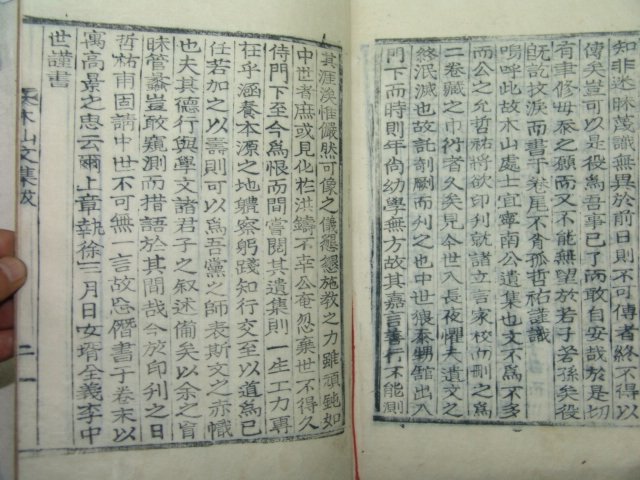 知非迷眛蔑識無異於不可傳者終不以得
傳矣豈可以是役爲吾事已了而敢自安哉於是切
有重修毋忝之願而又不能無望於若子若孫矣役
旣訖抆淚而書于卷尾不肖孤哲祐謹識
嗚呼此故木山處士宜寧南公遺集也文不爲不多
而公之允哲祐將欲印刊就諸立言家校而刪之爲
二卷藏之巾衍者久矣見今世入長夜懼夫遺文之
終泯滅也故託剞劂而刊之也中世猥忝甥舘出入
門下而時則年尚幼學無方故其嘉言善行不能測
其涯涘惟儼然可像之儀懇懇施敎之力雖頑鈍如
中世者庶或見化於洪鑄不幸公奄忽棄世不得久
侍門下至今爲恨而間嘗閱其遺集則一生工力專
在乎涵養本源之地體察躬踐知行交至以道爲己
任若加之以壽則可以爲吾黨之師表斯文之赤幟
也夫其德行與學文諸君子之叙述備矣以余之盲
眛管蠡豈敢窺測而措語於其間哉今於印刊之日
哲祐甫固請中世不可無一言故忘僭書于卷末以
寓高景之思云爾上章執徐三月日女壻全義李中
世謹書
木山文集跋